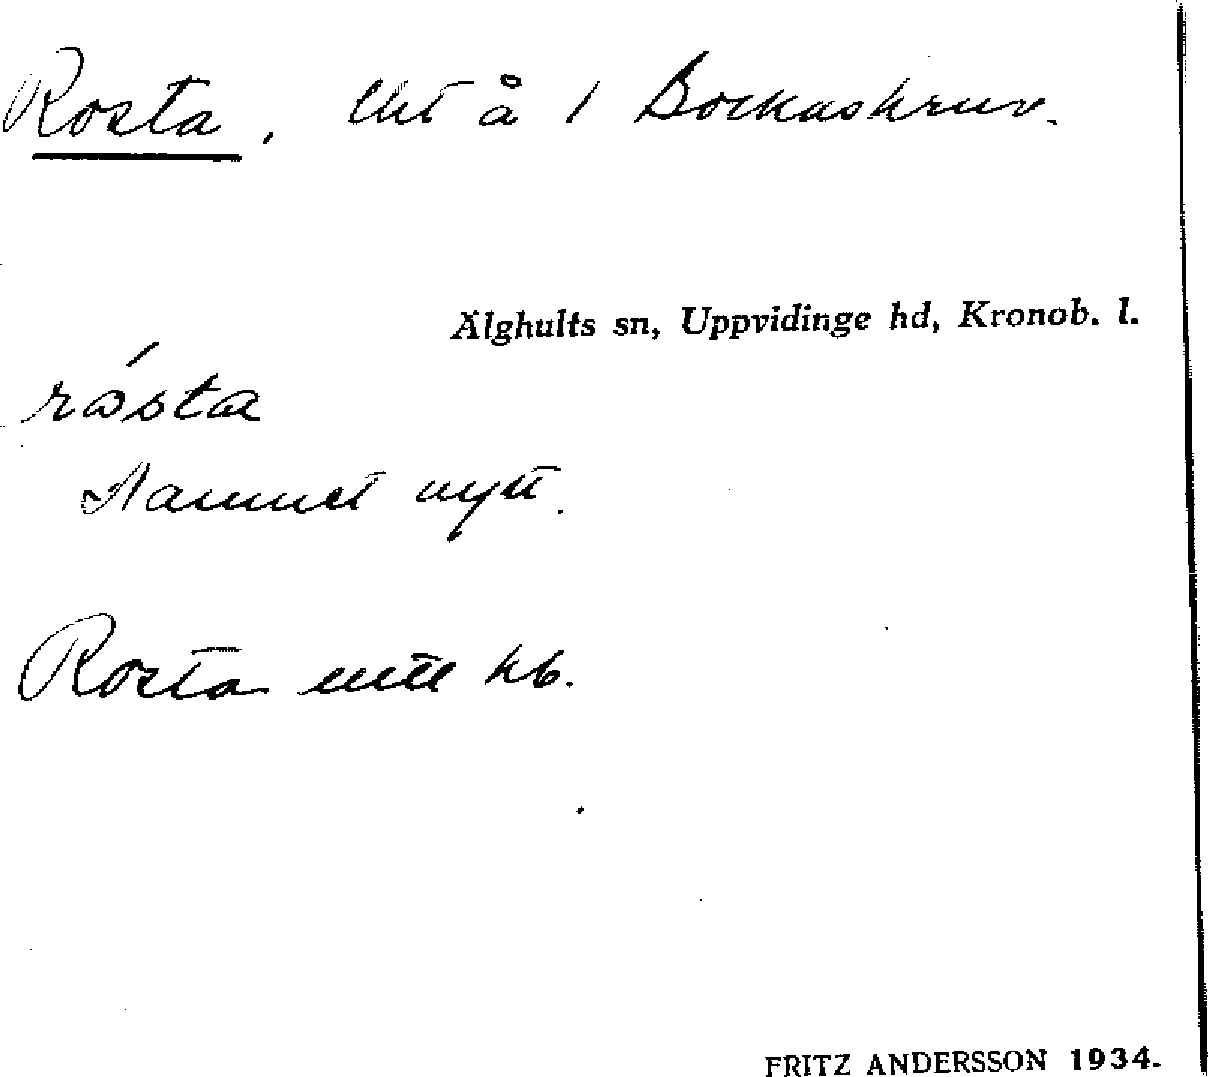 Rosta, lht å 1 Bockaskruv.
Älghults sn, Uppvidinge hd, Kronob. l.
rósta
Namnet nytt.
Rosta kb.
FRITZ ANDERSSON 1934.